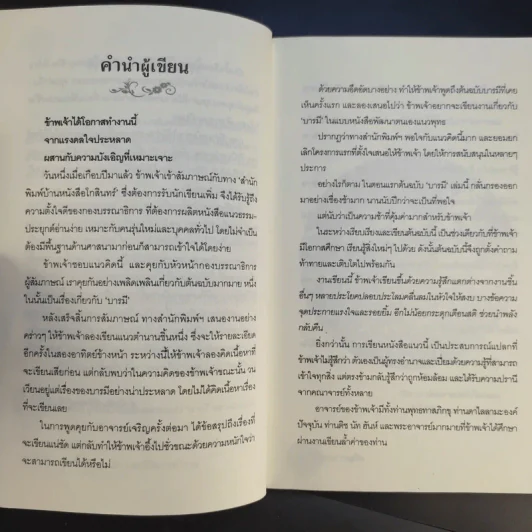 คำนำผู้เขียน
ข้าพเจ้าได้โอกาสทำงานนี้
จากแรงดลใจประหลาด
ผสานกับความบังเอิญที่เหมาะเจาะ
วันหนึ่งเมื่อเกือบปีมาแล้ว ข้าพเจ้าเข้าสัมภาษณ์กับทาง 'สำนัก
พิมพ์บ้านหนังสือโกสินทร์' ซึ่งต้องการรับนักเขียนเพิ่ม จึงได้รับรู้ถึง
ความตั้งใจดีของกองบรรณาธิการ ที่ต้องการผลิตหนังสือแนวธรรมะ-
ประยุกต์อ่านง่าย เหมาะกับคนรุ่นใหม่และบุคคลทั่วไป โดยไม่จำเป็น
ต้องมีพื้นฐานด้านศาสนามาก่อนก็สามารถเข้าใจได้โดยง่าย
ข้าพเจ้าชอบแนวคิดนี้ และคุยกับหัวหน้ากองบรรณาธิการ
ผู้สัมภาษณ์ เราคุยกันอย่างเพลิดเพลินเกี่ยวกับต้นฉบับมากมาย หนึ่ง
ในนั้นเป็นเรื่องเกี่ยวกับ 'บารมี'
หลังเสร็จสิ้นการสัมภาษณ์ ทางสำนักพิมพ์ฯ เสนองานอย่าง
คร่าวๆ ให้ข้าพเจ้าลองเขียนแนวตำนานชิ้นหนึ่ง ซึ่งจะให้รายละเอียด
อีกครั้งในสองอาทิตย์ข้างหน้า ระหว่างนี้ให้ข้าพเจ้าลองคิดเนื้อหาที่
จะเขียนเสียก่อน แต่กลับพบว่าในความคิดของข้าพเจ้าขณะนั้น วน
เวียนอยู่แต่เรื่องของบารมีอย่างน่าประหลาด โดยไม่ได้คิดเนื้อหาเรื่อง
ที่จะเขียนเลย
ในการพูดคุยกับอาจารย์เจริญครั้งต่อมา ได้ข้อสรุปถึงเรื่องที่
จะเขียนแน่ชัด แต่กลับทำให้ข้าพเจ้าอึ้งไปชั่วขณะด้วยความหนักใจว่า
จะสามารถเขียนได้หรือไม่
ด้วยความอึดอัดบางอย่าง ทำให้ข้าพเจ้าพูดถึงต้นฉบับบารมีที่เคย
เห็นครั้งแรก และลองเสนอไปว่า ข้าพเจ้าอยากจะเขียนงานเกี่ยวกับ
'บารมี' ในแบบหนังสือพัฒนาตนเองแนวพุทธ
ปรากฏว่าทางสำนักพิมพ์ฯ พอใจกับแนวคิดนี้มาก และยอมยก
เลิกโครงการแรกที่ตั้งใจเสนอให้ข้าพเจ้า โดยให้การสนับสนุนในหลายๆ
ประการ
อย่างไรก็ตาม ในตอนแรกต้นฉบับ 'บารมี' เล่มนี้ กลั่นกรองออก
มาอย่างเชื่องช้ามาก นานนับปีกว่าจะเป็นที่พอใจ
แต่นับว่าเป็นความช้าที่คุ้มค่ามากสำหรับข้าพเจ้า
ในระหว่างเรียบเรียงและเขียนต้นฉบับนี้ เป็นช่วงเดียวกับที่ข้าพเจ้า
มีโอกาสศึกษา เรียนรู้สิ่งใหม่ๆ ไปด้วย ดังนั้นต้นฉบับนี้จึงถูกตั้งคำถาม
ท้าทายและเติบโตไปพร้อมกัน
งานเขียนนี้ ข้าพเจ้าเขียนขึ้นด้วยความรู้สึกแตกต่างจากงานชิ้น
อื่นๆ หลายประโยคปลอบประโลมคลื่นลมในหัวใจให้สงบ บางข้อความ
จุดประกายแรงใจและรอยยิ้ม อีกไม่น้อยกระตุกเตือนสติ ช่วยนำพลัง
กลับคืน
ยิ่งกว่านั้น การเขียนหนังสือแนวนี้ เป็นประสบการณ์แปลกที่
ข้าพเจ้ารู้สึกว่า ตัวเองเป็นผู้ทรงอำนาจและเปี่ยมด้วยความรู้ที่สามารถ
เข้าใจทุกสิ่ง แต่ตรงข้ามกลับรู้สึกว่าถูกห้อมล้อม และได้รับความปรานี
จากคณาจารย์ทั้งหลาย
อาจารย์ของข้าพเจ้ามีทั้งท่านพุทธทาสภิกขุ ท่านดาไลลามะองค์
ปัจจุบัน ท่านติช นัท ฮันห์ และพระอาจารย์มากมายที่ข้าพเจ้าได้ศึกษา
ผ่านงานเขียนล้ำค่าของท่าน